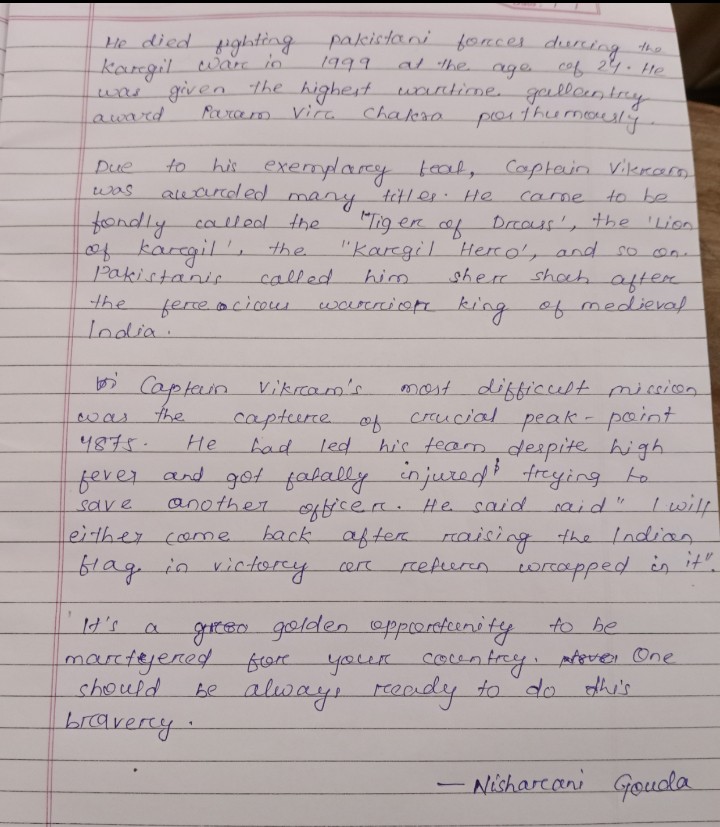 He died fighting pakistani forces during the
Kargil war in 1999 at the age of 24. He
was given the highest wartime gallantry
award Param Vir Chakra posthumously.
Due to his exemplary feat, Captain Vikram
was awarded many titles. He came to be
fondly called the "Tiger of Drass', the 'Lion
of Kargil', the "Kargil Hero', and so on.
Pakistanis called him sher shah after
the fereocious warrior king of medieval
India.
Captain Vikram's most difficult mission
was the capture of crucial peak - point
4875. He had led his team despite high
fever and got fatally injured trying to
save another officer. He said said " I will
either come back after raising the Indian
flag in victory or return wrapped in it".
'It's a golden opportunity to be
martyered for your country. One
should be always ready to do this
bravery.
— Nisharani Gouda